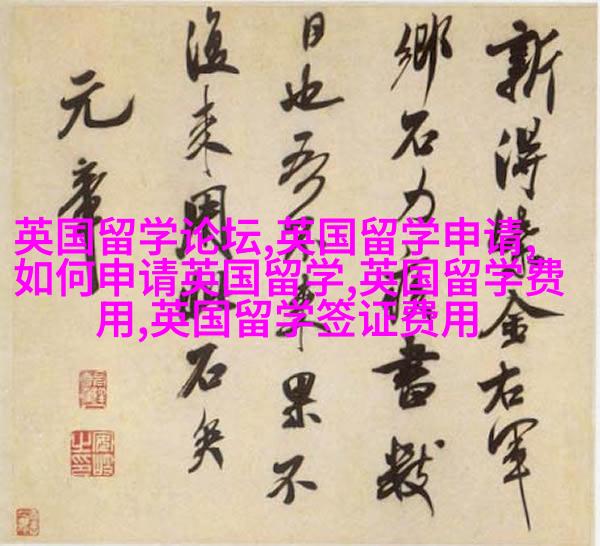 英国留学论坛,英国留学申请,
如何申请英国留学,英国留学费
用,英国留学签证费用
新得紫金右軍
鄉石力疾書數
日也吾不來果不
復來用此石矣
元章